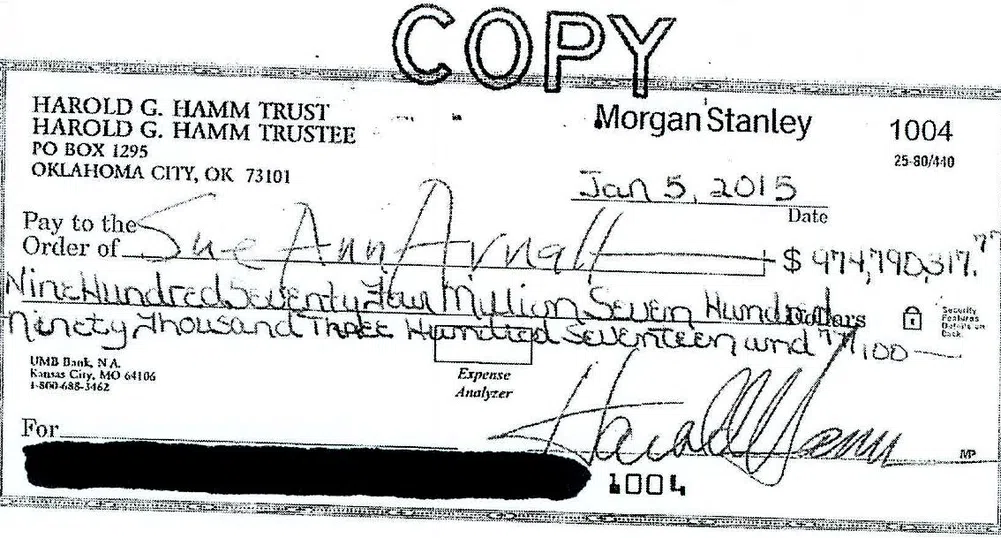 COPY
HAROLD G. HAMM TRUST
HAROLD G. HAMM TRUSTEE
PO BOX 1295
OKLAHOMA CITY, OK 73101
Morgan Stanley
1004
25-80/440
Jan 5, 2015
Date
Pay to the
Order of Sue Ann Arnall $ 974,790,317.77
Nine Hundred Seventy Four Million Seven Hundred Dollars
Ninety Thousand Three Hundred Seventeen and 77/100
Security
Features
Details on
Back.
UMB Bank, N.A.
Kansas City, MO 64106
1-800-688-3462
Expense
Analyzer
For
Harold Hamm
MP
1004